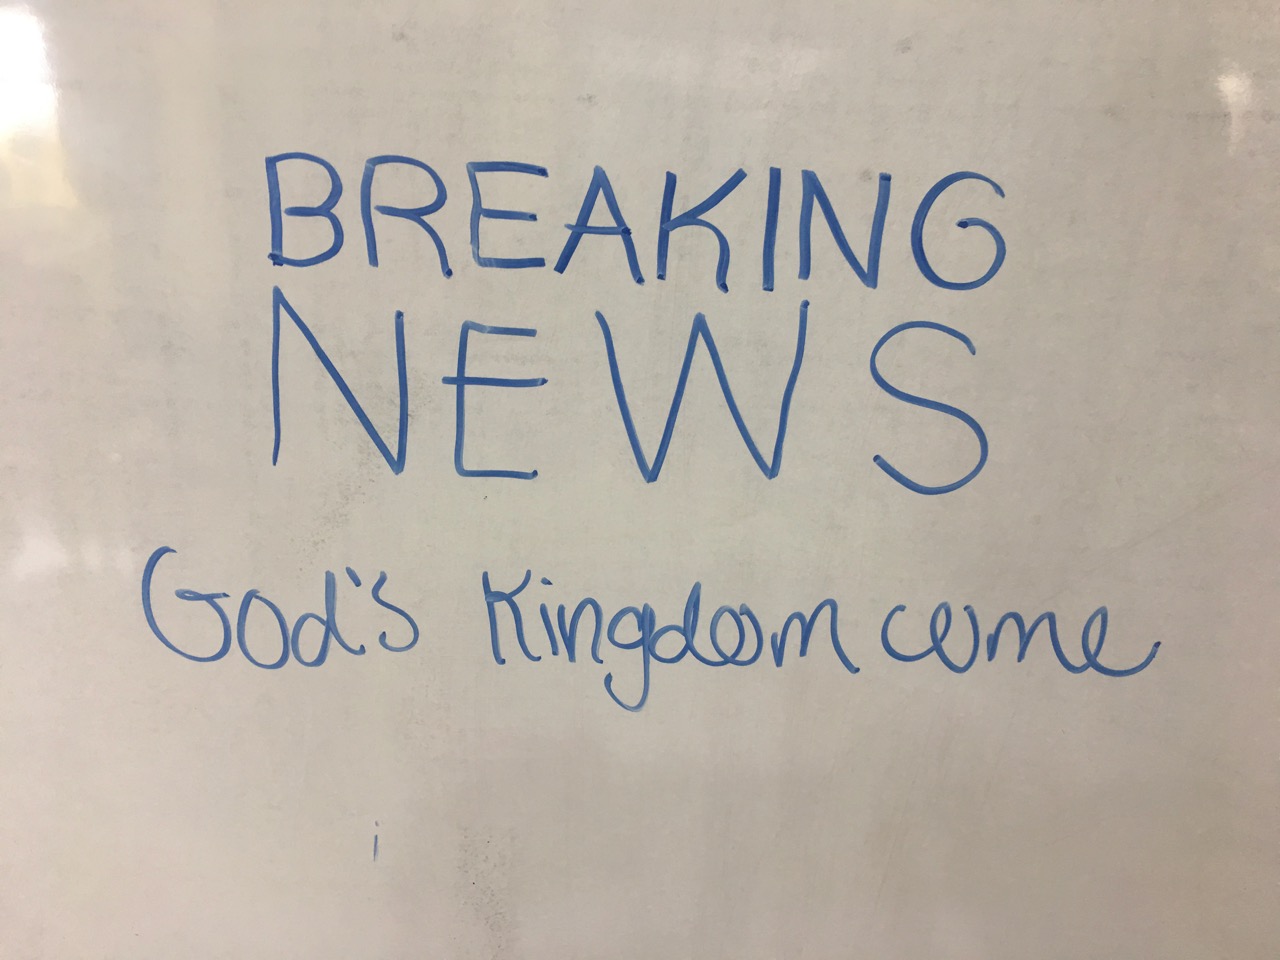 BREAKING
NEWS
God's Kingdom come
i